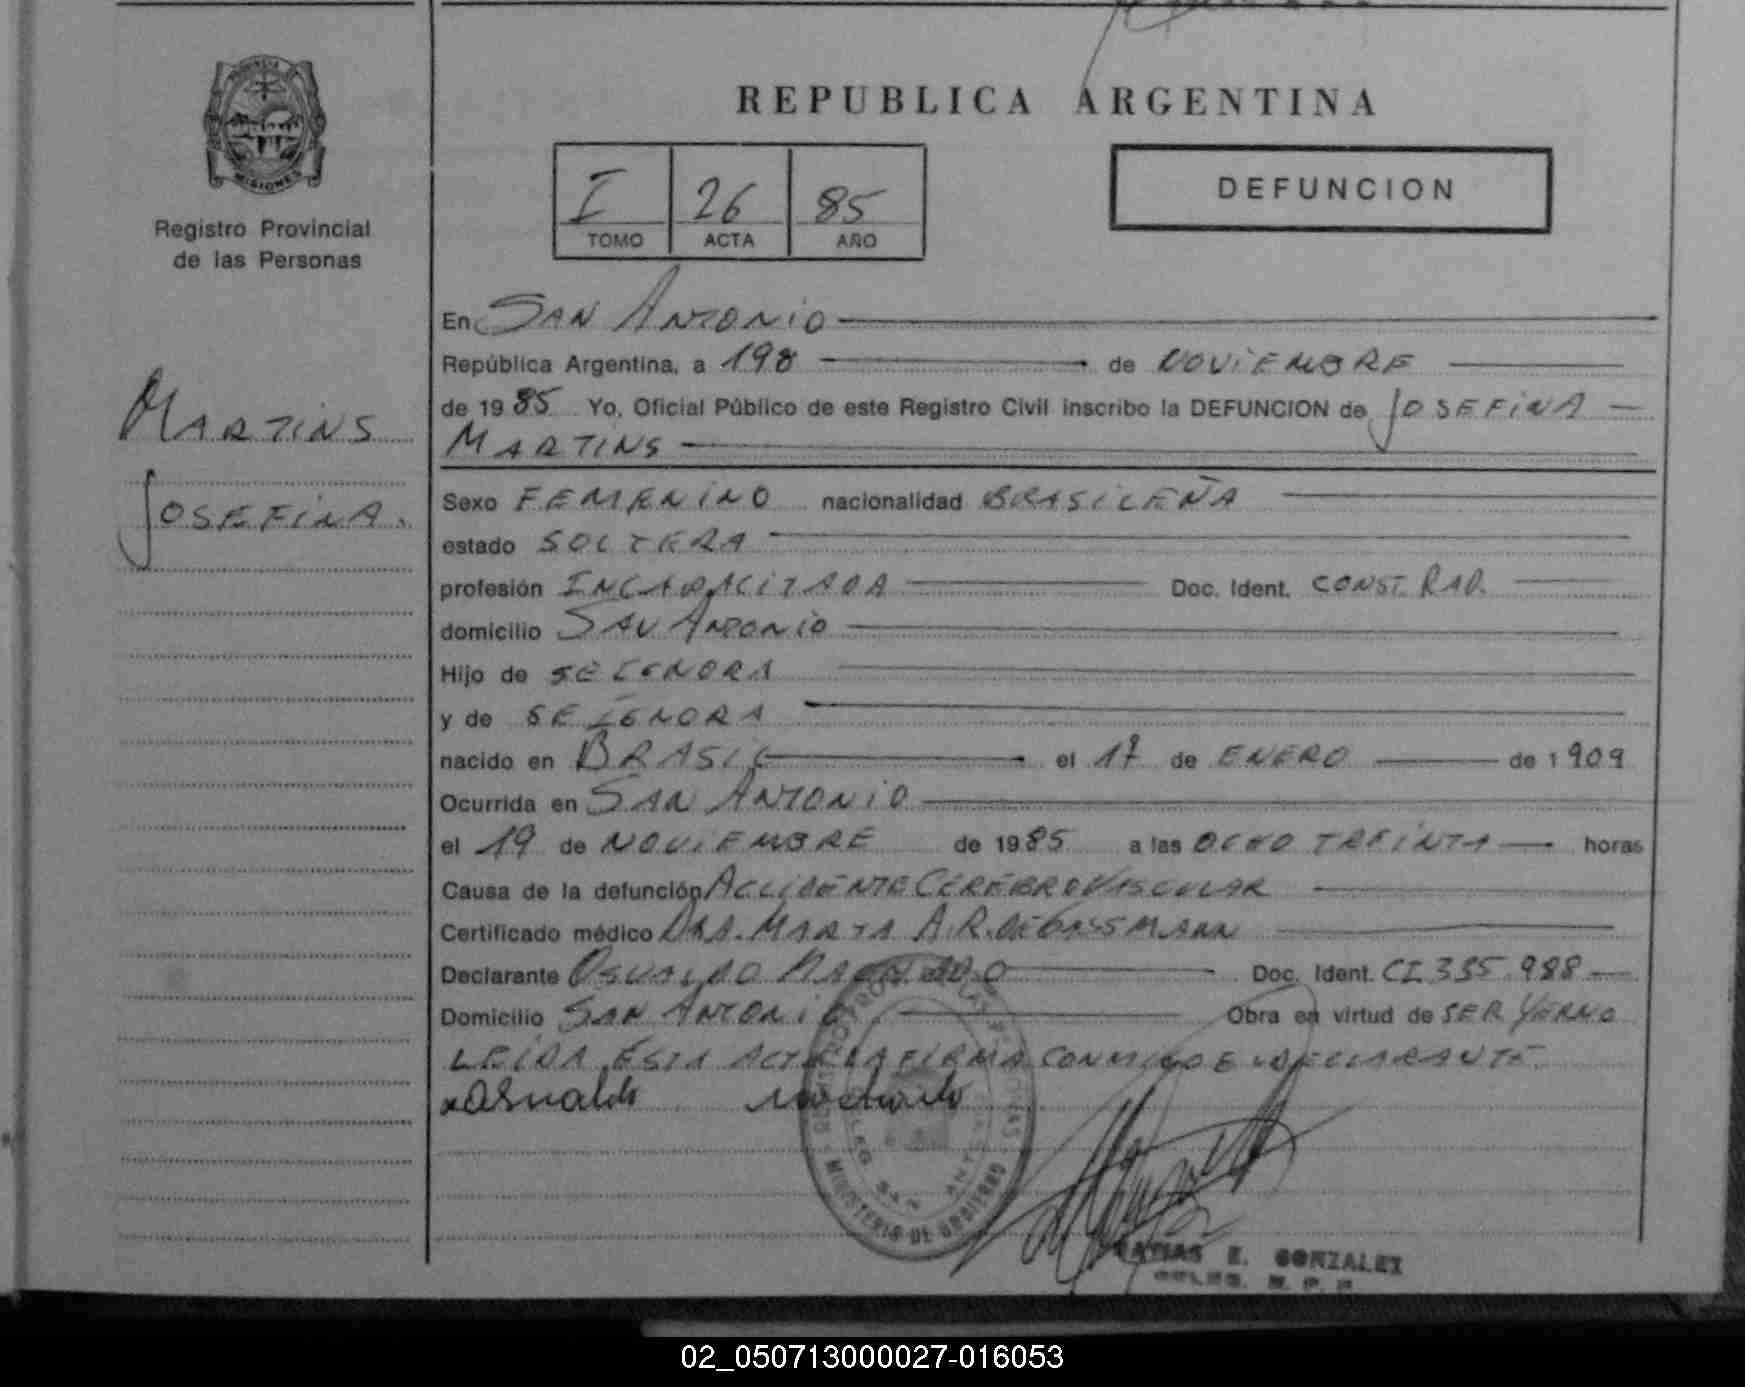 PROVINCIA DE
MISIONES
Registro Provincial
de las Personas
MARTINS
JOSEFINA.
REPUBLICA ARGENTINA
I 26 85
TOMO ACTA AÑO
DEFUNCION
En SAN ANTONIO
República Argentina, a 198 de NOVIEMBRE
de 1985 Yo, Oficial Público de este Registro Civil inscribo la DEFUNCION de JOSEFINA
MARTINS
Sexo FEMENINO nacionalidad BRASILEÑA
estado SOLTERA
profesión INCAPACITADA Doc. Ident. CONST. RAD.
domicilio SAN ANTONIO
Hijo de SE IGNORA
y de SE IGNORA
nacido en BRASIL el 17 de ENERO de 1909
Ocurrida en SAN ANTONIO
el 19 de NOVIEMBRE de 1985 a las OCHO TREINTA horas
Causa de la defunción ACCIDENTE CEREBRO VASCULAR
Certificado médico DRA. MARTA A.R. DE GASSMANN
Declarante OSVALDO Doc. Ident. CI 335.988
Domicilio SAN ANTONIO Obra en virtud de SER YERNO
LEIDA ESTA ACTA LA FIRMA CONMIGO E DECLARANTE
MINISTERIO DE GOBIERNO
E. GONZALEZ
02_050713000027-016053